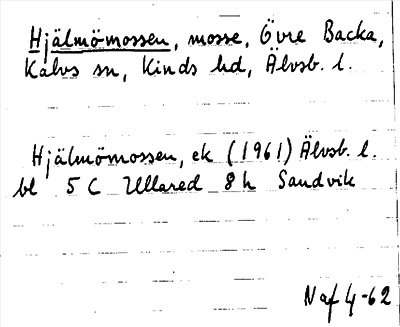 Hjälmömossen, mosse, Övre Backa,
Kalvs sn, Kinds hd, Älvsb. l.
Hjälmömossen, ek (1961) Älvsb. l.
bl 5 C Ullared 8 h Sandvik
Naf 4-62